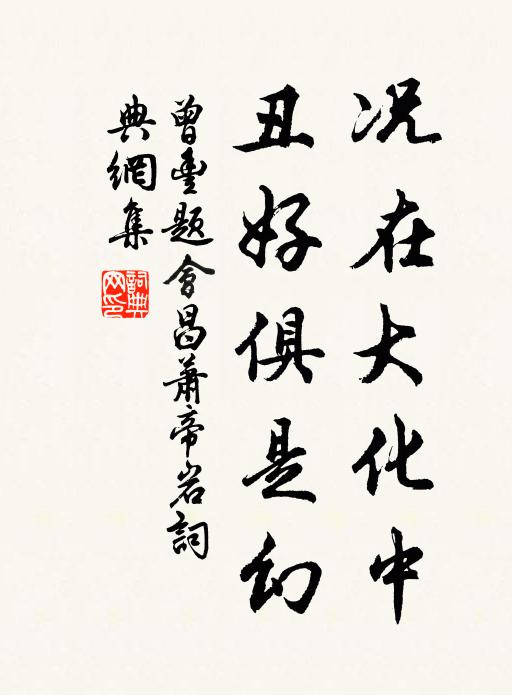 况在大化中
丑好俱是幻
曾丰题会昌萧帝岩詞
典網集
詞典网印